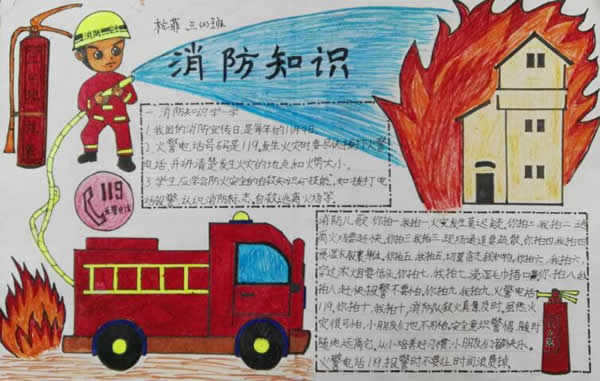 松菲 三(4)班
消防
消防知识
一.消防知识学一学
1.我国的消防宣传日是每年的11月9日.
2.火警电话号码是119,发生火灾时要尽快拨打火警
电话,并讲清楚发生火灾的地点和火势大小。
3.学生应学会防火安全的自救知识与技能,如拨打电
话报警,认识消防标志,自救逃离火场等.
119
火警电话
消防儿歌 你拍一我拍一火灾发生莫迟疑,你拍二,我拍二,逃
离火场要赶快,你拍三我拍三,现场通道要疏散,你拍四我拍四
你拍五,我拍五,你拍六,我拍六,
穿过浓烟要低头,你拍七,我拍七,浸湿毛巾捂口鼻,你拍八我
拍八,赶快报警不要怕,你拍九,我拍九,火警电话
119,你拍十,我拍十,消防队救火真集及时,虽然火
灾很可怕,小朋友们也不用怕,安全意识警惕,随时
随地远离它,从小培养好习惯,小朋友们都快乐。
火警电话119,报警时不要让时间浪费掉